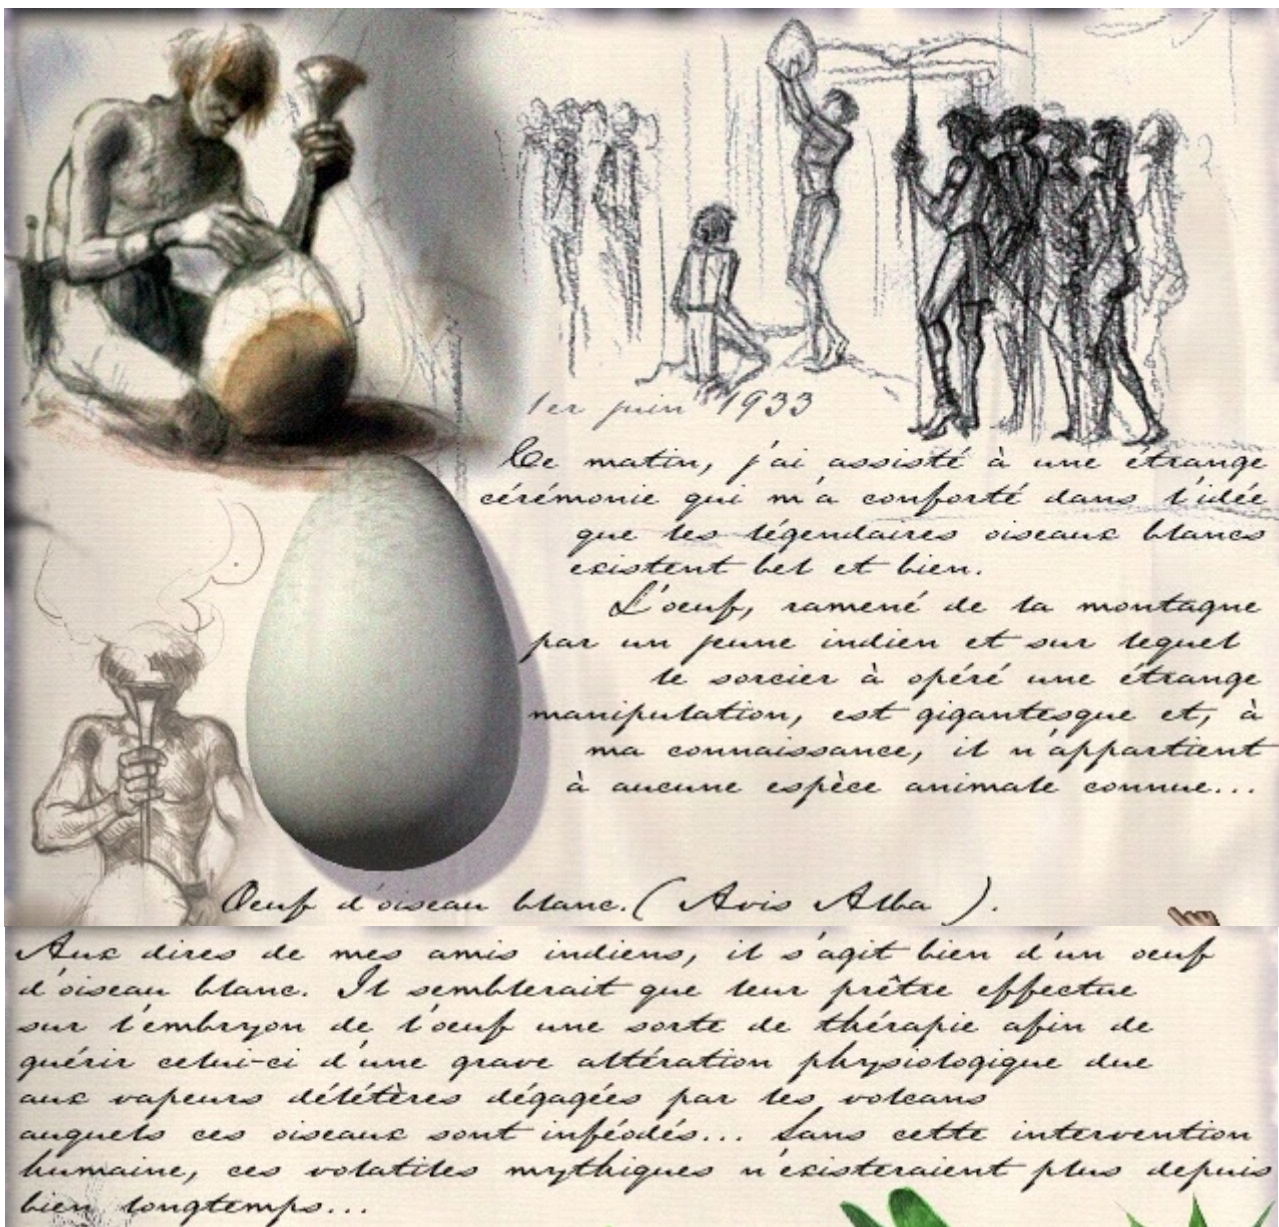 1er juin 1933
Ce matin, j'ai assisté à une étrange
cérémonie qui m'a conforté dans l'idée
que les légendaires oiseaux blancs
existent bel et bien.
L'oeuf, ramené de la montagne
par un jeune indien et sur lequel
le sorcier à opéré une étrange
manipulation, est gigantesque et, à
ma connaissance, il n'appartient
à aucune espèce animale connue...
Oeuf d'oiseau blanc. ( Avis Alba ).
Aux dires de mes amis indiens, il s'agit bien d'un oeuf
d'oiseau blanc. Il semblerait que leur prêtre effectue
sur l'embryon de l'oeuf une sorte de thérapie afin de
guérir celui-ci d'une grave altération physiologique due
aux vapeurs délétères dégagées par les volcans
auquels ces oiseaux sont inféodés... Sans cette intervention
humaine, ces volatiles mythiques n'existeraient plus depuis
bien longtemps...